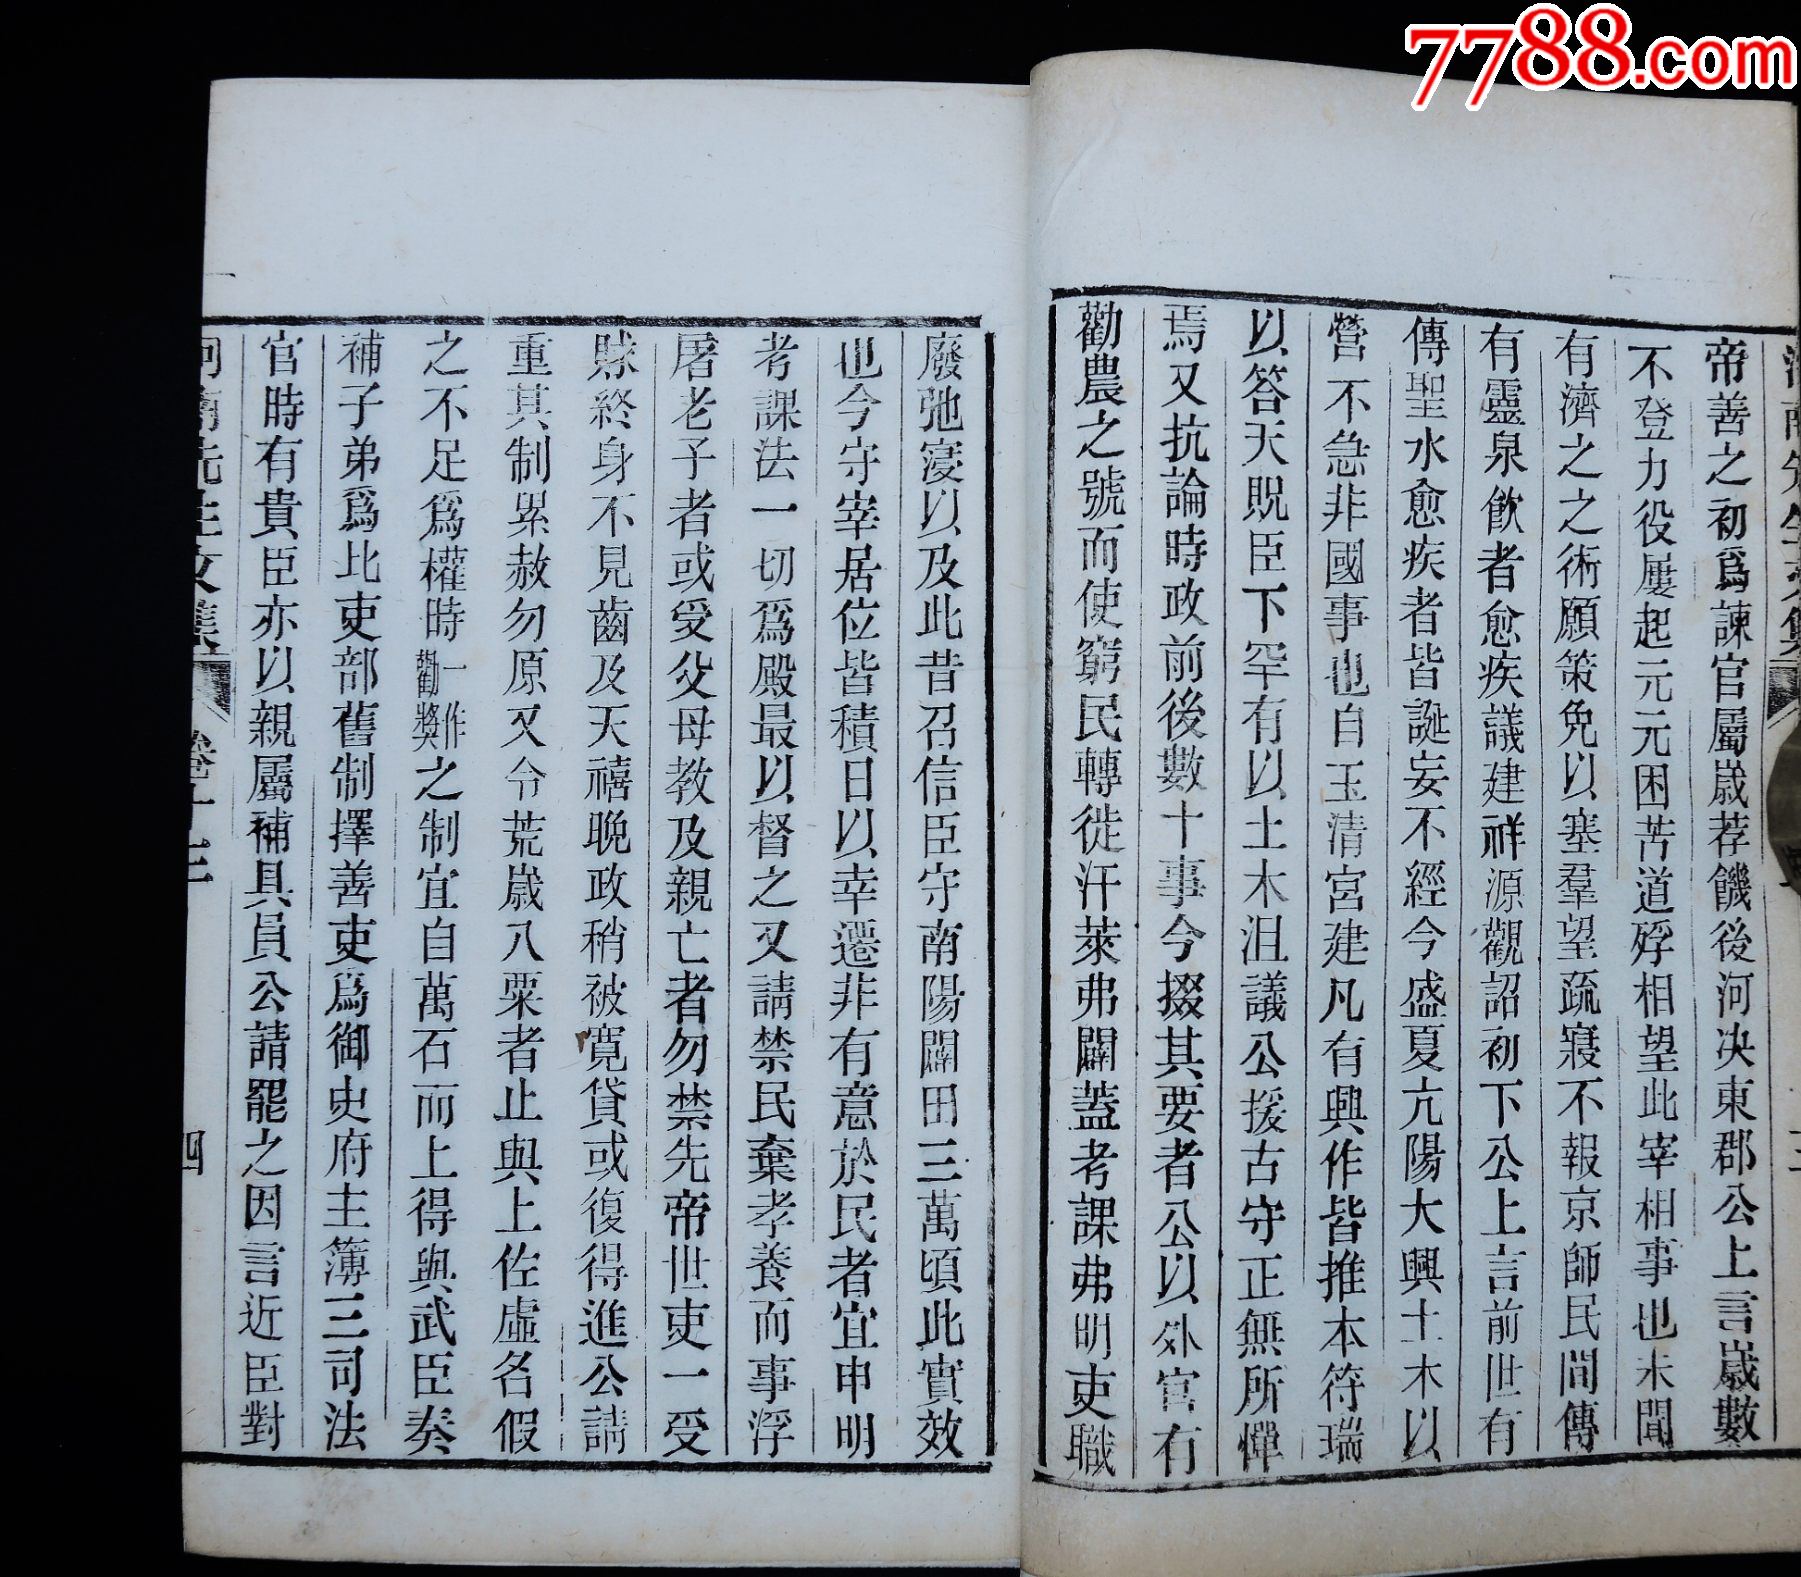 7788.com
帝善之初爲諫官屬嵗荐饑後河决東郡公上言嵗數
不登力役屢起元元困苦道殍相望此宰相事也未聞
有濟之之術願策免以塞羣望疏寢不報京師民間傳
有靈泉飲者愈疾議建祥源觀詔初下公上言前世有
傳聖水愈疾者皆誕妄不經今盛夏亢陽大興土木以
營不急非國事也自玉清宮建凡有興作皆推本符瑞
以答天貺臣下罕有以土木沮議公援古守正無所憚
焉又抗論時政前後數十事今掇其要者公以外官有
勸農之號而使窮民轉徙汙萊弗闢蓋考課弗明吏職
廢弛寖以及此昔召信臣守南陽闢田三萬頃此實效
也今守宰居位皆積日以幸遷非有意於民者宜申明
考課法一切爲殿最以督之又請禁民棄孝養而事浮
屠老子者或受父母教及親亡者勿禁先帝世吏一受
賕終身不見齒及天禧晚政稍被寬貸或復得進公請
重其制累赦勿原又令荒嵗入粟者止與上佐虛名假
之不足爲權時一作勸奬之制宜自萬石而上得與武臣奏
補子弟爲比吏部舊制擇善吏爲御史府主簿三司法
官時有貴臣亦以親屬補其員公請罷之因言近臣對
河南先生文集 卷十二 四